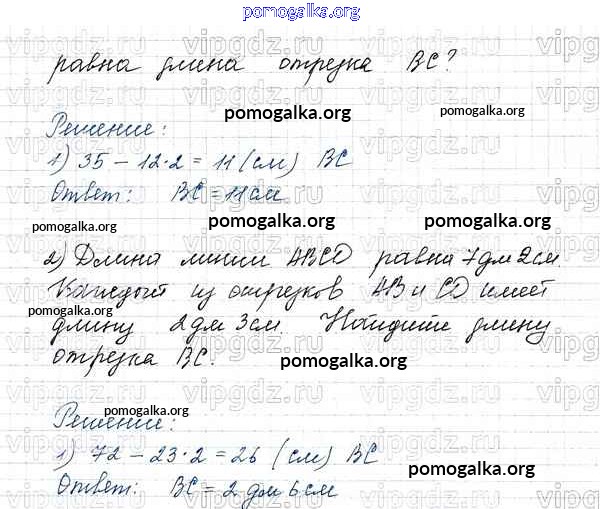 pomogalka.org
равна длина отрезка BC?
pomogalka.org pomogalka.org
Решение:
1) 35 - 12·2 = 11 (см) BC
Ответ: BC = 11 см.
pomogalka.org pomogalka.org pomogalka.org
2) Длина линии ABCD равна 7 дм 2 см
Каждый из отрезков AB и CD имеет
pomogalka.org
длину 2 дм 3 см. Найдите длину
отрезка BC.
pomogalka.org
pomogalka.org
Решение:
1) 72 - 23·2 = 26 (см) BC
pomogalka.org
Ответ: BC = 2 дм 6 см
vipgdz.ru vipgdz.ru vipgdz.ru